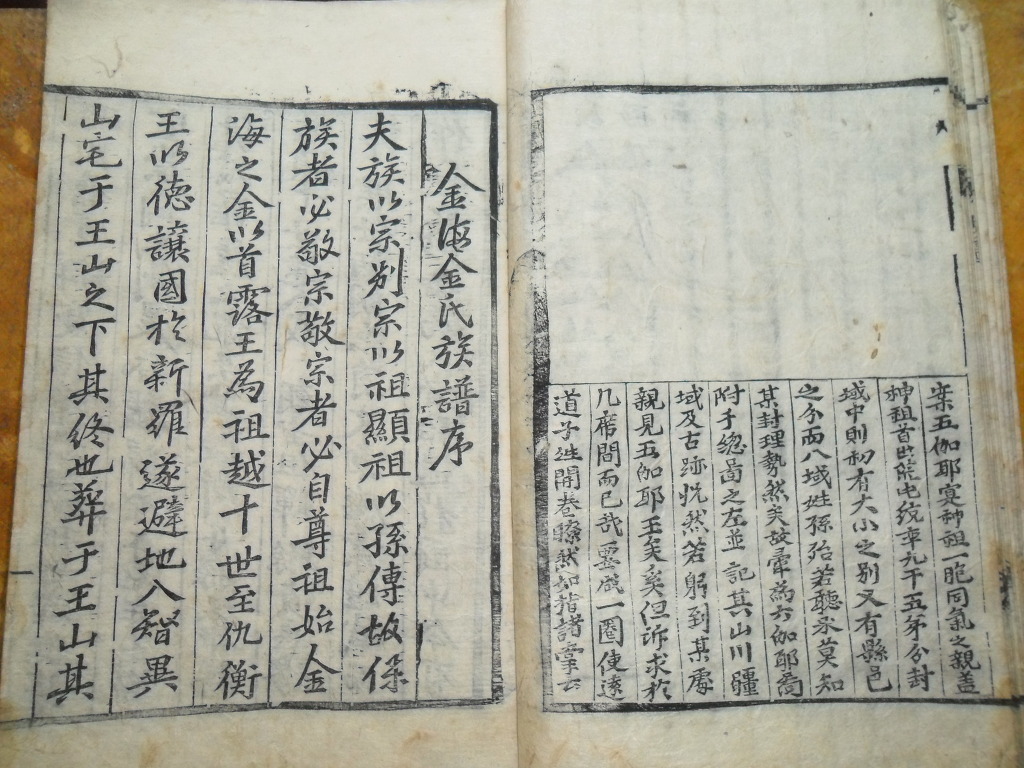 案五伽耶寔神祖一胞同氣之親盖
神祖首出能屯統率九干五弟分封
域中則初有大小之別又有縣邑
之分而八域姓孫殆若聽承莫知
其封理勢然矣故彙爲六伽耶圖
附于總啚之左並記其山川疆
域及古跡恍然若躬到某處
親見五伽耶王矣奚但訴求於
几席間而已哉要成一圈使遠
道子姓開卷瞭然如指諸掌云
金海金氏族譜序
夫族以宗别宗以祖顯祖以孫傳故保
族者必敬宗敬宗者必自尊祖始金
海之金以首露王為祖越十世至仇衡
王以德讓國於新羅遂避地入智異
山宅于王山之下其終也葬于王山其